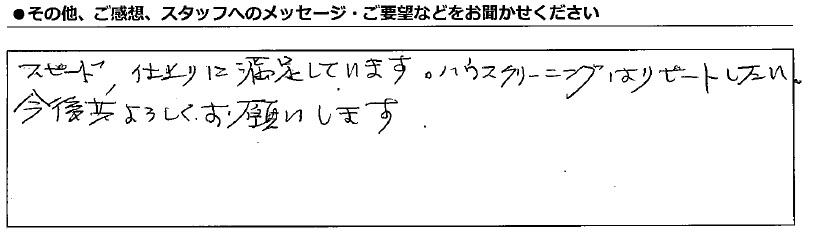 ●その他、ご感想、スタッフへのメッセージ・ご要望などをお聞かせください
スピード、仕上りに満足しています。ハウスクリーニングはリピートしたい。
今後共よろしくお願いします